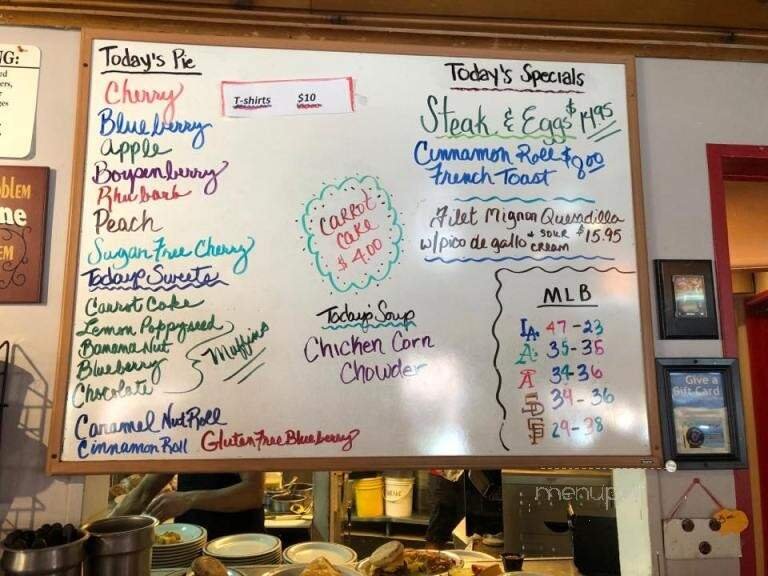 Today's Pie
Cherry
Blueberry
apple
Boysenberry
Rhubarb
Peach
Sugar Free Cherry
Today's Sweets
Carrot Cake
Lemon Poppyseed
Banana Nut
Blueberry
Chocolate
Muffins
Caramel Nut Roll
Cinnamon Roll
Gluten Free Blueberry
T-shirts $10
CARROT
CAKE
$4.00
Today's Soup
Chicken Corn
Chowder
Today's Specials
Steak & Eggs $14.95
Cinnamon Roll $8.00
French Toast
Filet Mignon Quesadilla
w/pico de gallo + SOUR CREAM $15.95
MLB
LA 47-23
A's 35-35
A 34-36
SD 34-36
SF 29-38
Give a
Gift Card
G:
oblem
ne
EM
menupix